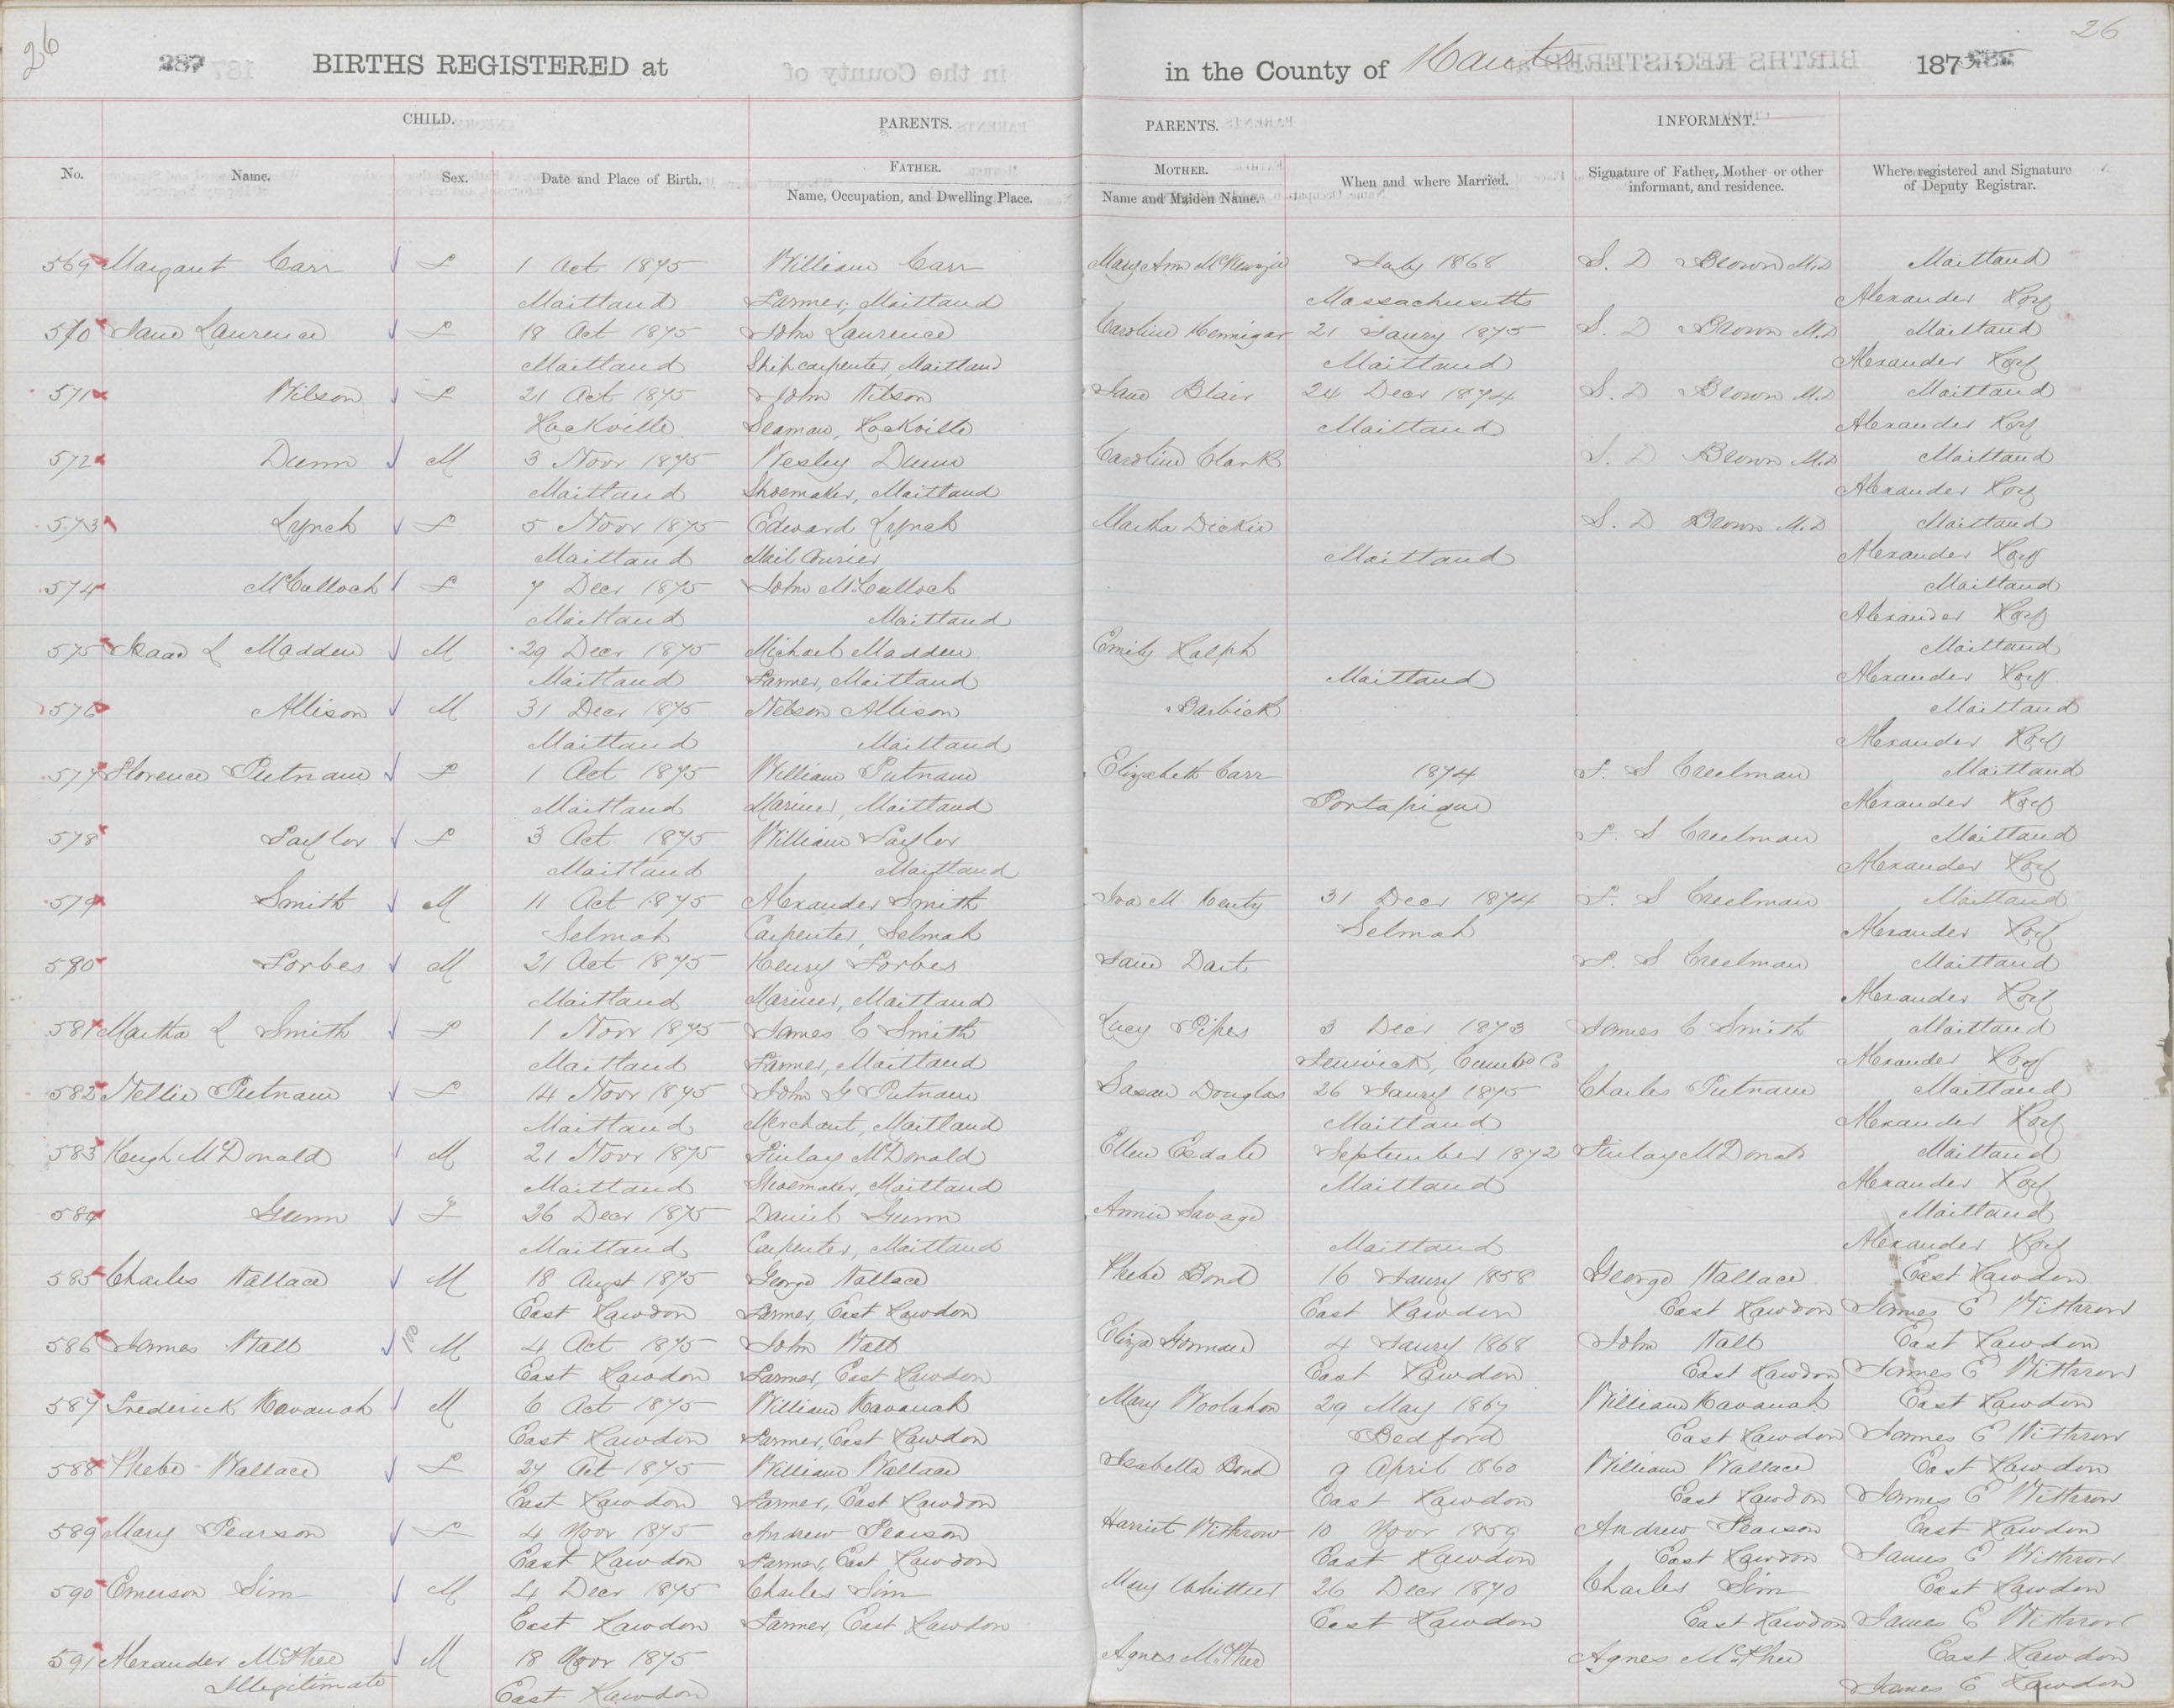 26
26
287
BIRTHS REGISTERED at
in the County of Hants
187
CHILD.
PARENTS.
PARENTS.
INFORMANT.
No.
Name.
Sex.
Date and Place of Birth.
FATHER.
Name, Occupation, and Dwelling Place.
MOTHER.
Name and Maiden Name.
When and where Married.
Signature of Father, Mother or other
informant, and residence.
Where registered and Signature
of Deputy Registrar.
569 Margaret Carr F 1 Oct 1875 William Carr Mary Ann McKenzie July 1868 S. D Brown M.D Maitland
Maitland Farmer, Maitland Massachusetts Alexander Roy
570 Jane Laurence F 18 Oct 1875 John Laurence Caroline Hennigar 21 Jany 1875 S. D Brown M.D Maitland
Maitland Ship carpenter, Maitland Maitland Alexander Roy
571 Wilson F 21 Oct 1875 John Wilson Jane Blair 24 Decr 1874 S. D Brown M.D Maitland
Rockville Seaman, Rockville Maitland Alexander Roy
572 Dunn M 3 Novr 1875 Wesley Dunn Caroline Clark S. D Brown M.D Maitland
Maitland Shoemaker, Maitland Alexander Roy
573 Lynch F 5 Novr 1875 Edward Lynch Martha Dickie S. D Brown M.D Maitland
Maitland Mail Courier Maitland Alexander Roy
574 McCulloch F 7 Decr 1875 John McCulloch Maitland
Maitland Maitland Alexander Roy
575 Isaac L Madden M 29 Decr 1875 Michael Madden Emily Ralph Maitland
Maitland Farmer, Maitland Maitland Alexander Roy
576 Allison M 31 Decr 1875 Nelson Allison Barbick Maitland
Maitland Maitland Alexander Roy
577 Florence Putnam F 1 Oct 1875 William Putnam Elizabeth Carr 1874 F. S Creelman Maitland
Maitland Mariner, Maitland Portapique Alexander Roy
578 Saylor F 3 Oct 1875 William Saylor F. S Creelman Maitland
Maitland Maitland Alexander Roy
579 Smith M 11 Oct 1875 Alexander Smith Ira McKenty 31 Decr 1874 F. S Creelman Maitland
Selmah Carpenter, Selmah Selmah Alexander Roy
580 Forbes M 21 Oct 1875 Henry Forbes Jane Dart F. S Creelman Maitland
Maitland Mariner, Maitland Alexander Roy
581 Martha L Smith F 1 Novr 1875 James C Smith Lucy Pipes 3 Decr 1873 James C Smith Maitland
Maitland Farmer, Maitland Fenwick, Cumbd Co Alexander Roy
582 Nellie Putnam F 14 Novr 1875 John G Putnam Susan Douglas 26 Jany 1875 Charles Putnam Maitland
Maitland Merchant, Maitland Maitland Alexander Roy
583 Hugh McDonald M 21 Novr 1875 Finlay McDonald Ellen Esdale September 1872 Finlay McDonald Maitland
Maitland Shoemaker, Maitland Maitland Alexander Roy
584 Gunn F 26 Decr 1875 Daniel Gunn Annie Savage Maitland
Maitland Carpenter, Maitland Maitland Alexander Roy
585 Charles Wallace M 18 Augst 1875 George Wallace Phebe Bond 16 Jany 1858 George Wallace East Rawdon
East Rawdon Farmer, East Rawdon East Rawdon East Rawdon James E Withrow
586 James Wall M 4 Oct 1875 John Wall Eliza Gorman 4 Jany 1868 John Wall East Rawdon
East Rawdon Farmer, East Rawdon East Rawdon East Rawdon James E Withrow
587 Frederick Kavanah M 6 Oct 1875 William Kavanah Mary Woolahon 29 May 1867 William Kavanah East Rawdon
East Rawdon Farmer, East Rawdon Bedford East Rawdon James E Withrow
588 Phebe Wallace F 27 Oct 1875 William Wallace Isabella Bond 9 April 1860 William Wallace East Rawdon
East Rawdon Farmer, East Rawdon East Rawdon East Rawdon James E Withrow
589 Mary Pearson F 4 Novr 1875 Andrew Pearson Harriet Withrow 10 Novr 1859 Andrew Pearson East Rawdon
East Rawdon Farmer, East Rawdon East Rawdon East Rawdon James E Withrow
590 Emerson Sim M 4 Decr 1875 Charles Sim Mary Whittier 26 Decr 1870 Charles Sim East Rawdon
East Rawdon Farmer, East Rawdon East Rawdon East Rawdon James E Withrow
591 Alexander McPhee M 18 Novr 1875 Agnes McPhee Agnes McPhee East Rawdon
Illegitimate East Rawdon James E Rawdon